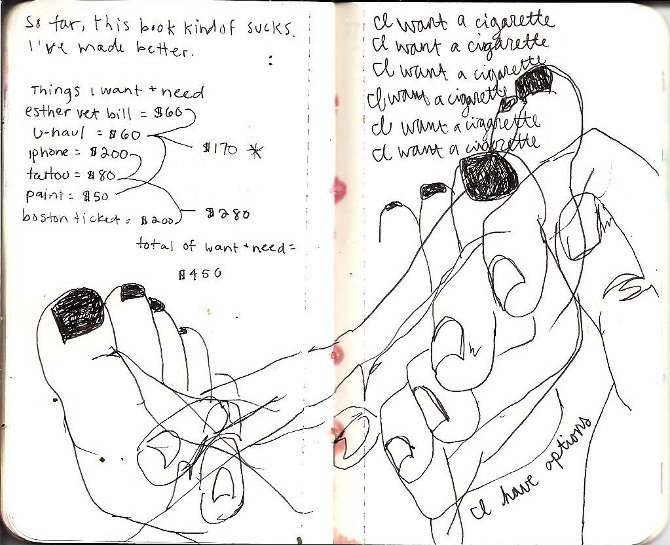 So far, this book kind of sucks.
I've made better.
Things I want + need
esther vet bill = $60
U-haul = $60
iphone = $200
tattoo = $80
paint = $50
boston ticket = $200
$170 *
$280
total of want + need =
$450
I want a cigarette
I want a cigarette
I want a cigarette
I want a cigarette
I want a cigarette
I want a cigarette
I have options